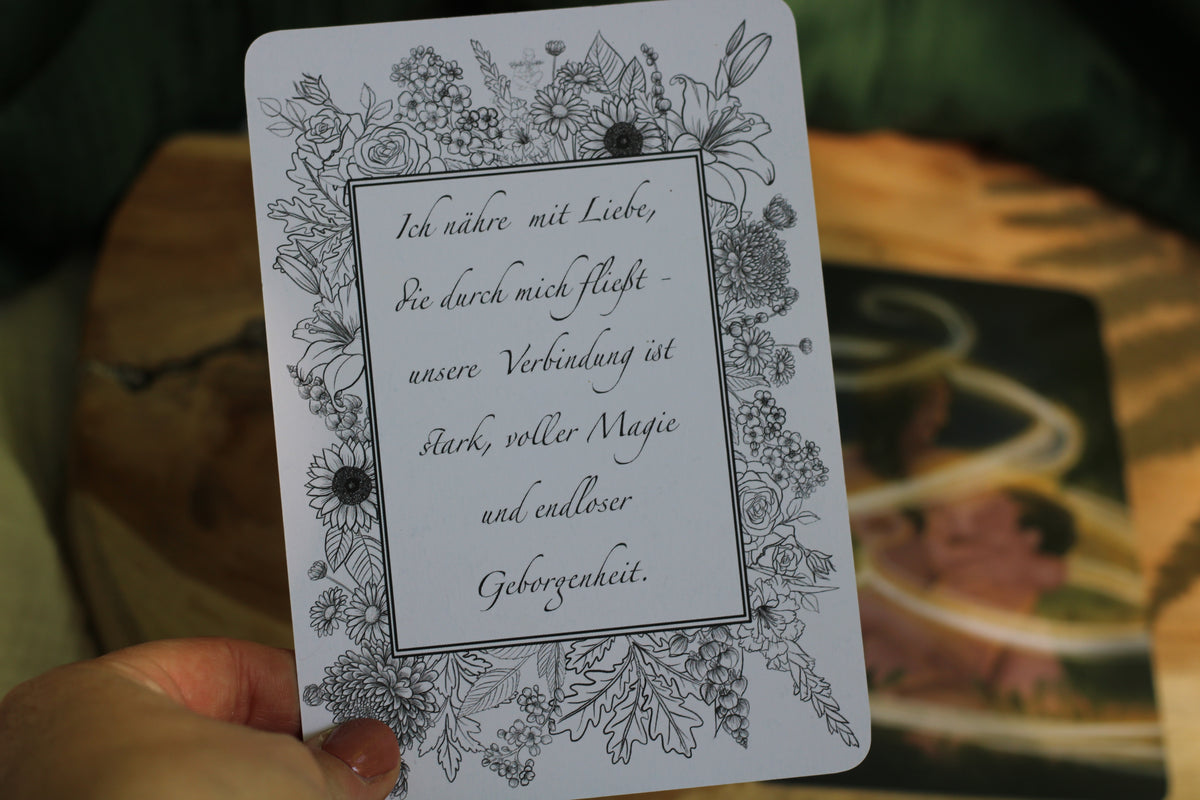 Ich nähre mit Liebe,
die durch mich fließt -
unsere Verbindung ist
stark, voller Magie
und endloser
Geborgenheit.